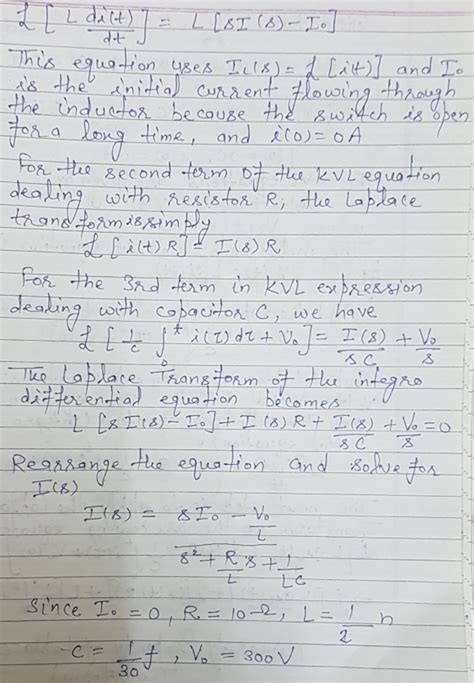 ℒ[L di(t)/dt] = L[sI(s) - I₀]
This equation uses I₁(s) = ℒ[i(t)] and I₀
is the initial current flowing through
the inductor because the switch is open
for a long time, and i(0) = 0A
For the second term of the KVL equation
dealing with resistor R, the Laplace
transform is simply
ℒ[i(t)R] = I(s)R
For the 3rd term in KVL expression
dealing with capacitor C, we have
ℒ[1/c ∫₀ᵗ i(τ)dτ + V₀] = I(s)/sC + V₀/s
The Laplace Transform of the integro
differential equation becomes
L[sI(s) - I₀] + I(s)R + I(s)/sC + V₀/s = 0
Rearrange the equation and solve for
I(s)
I(s) = (sI₀ - V₀/L)/(s² + R/L s + 1/LC)
Since I₀ = 0, R = 10Ω, L = 1/2 h
C = 1/30 f, V₀ = 300V